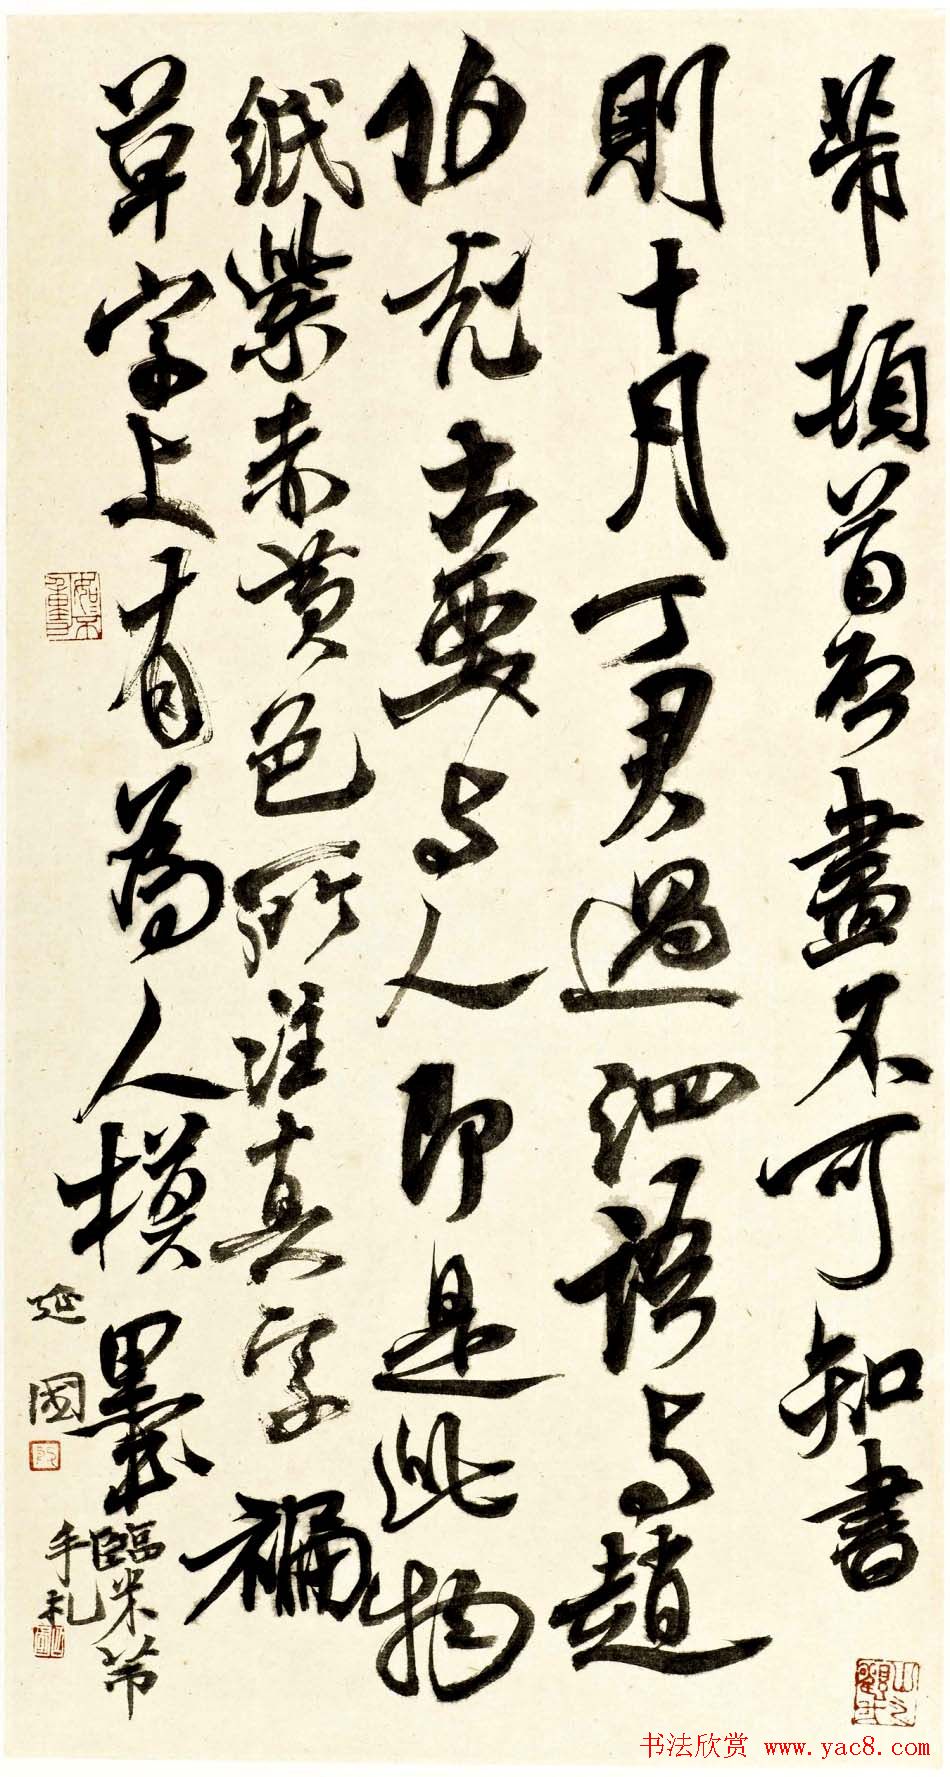 芾頓首所畫不可知書
則十月丁君過泗語与趙
伯充云要与人即是此物
紙紫赤黃色所注真字褊
草字上有為人模墨
臨米芾
手札
延國
书法欣赏 www.yac8.com